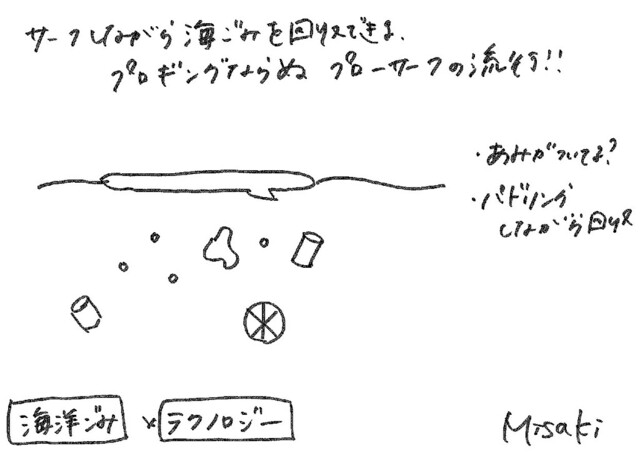 サーフしながら海ごみを回収できる.
プロギングならぬ プローサーフの流行!!
・あみがついてる?
・パドリング
しながら回収
海洋ごみ × テクノロジー
Misaki